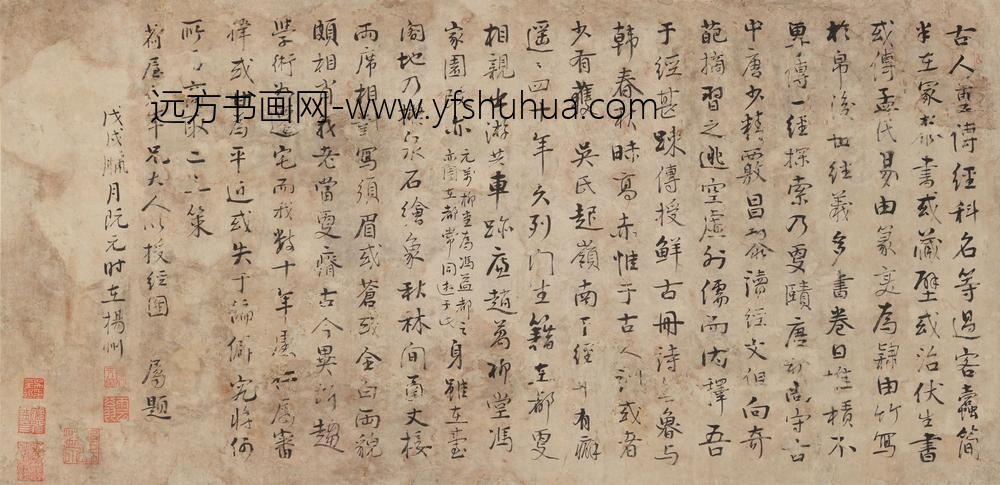 古人重傳經科名等過客蠹簡
半在冢秦書或藏壁或治伏生書
或傳孟氏易由篆變為隸由竹寫
於帛後世經義多書卷日堆積不
專傳一經探索乃更賾唐初尚守古
中唐少精覈昌黎讀經文但向奇
葩摘習之逃空虛外儒而內釋吾
于經甚疎傳授鮮古冊詩亡魯與
韓春秋昧高赤惟于古人訓或者
少有獲吳氏起嶺南丁經有癖
遥遥四年久列門生籍在都更
相親出游共車跡廉趙萬柳堂馮
家園亦元萬柳堂為馮益都亦園在都常同遊于此之身雖在臺
閣地乃泉石繪象秋林間函丈接
兩席相對寫須眉或蒼或金白兩貌
頗相我老當更瘠古今異所趨
學術為邃宅而我數十年屬審
擇或為平近或失于論偏究將何
所取二三策
荷屋中丞兄大人以授經圖 屬題
戊戌臘月阮元時在揚州
远方书画网-www.yfshuhua.com